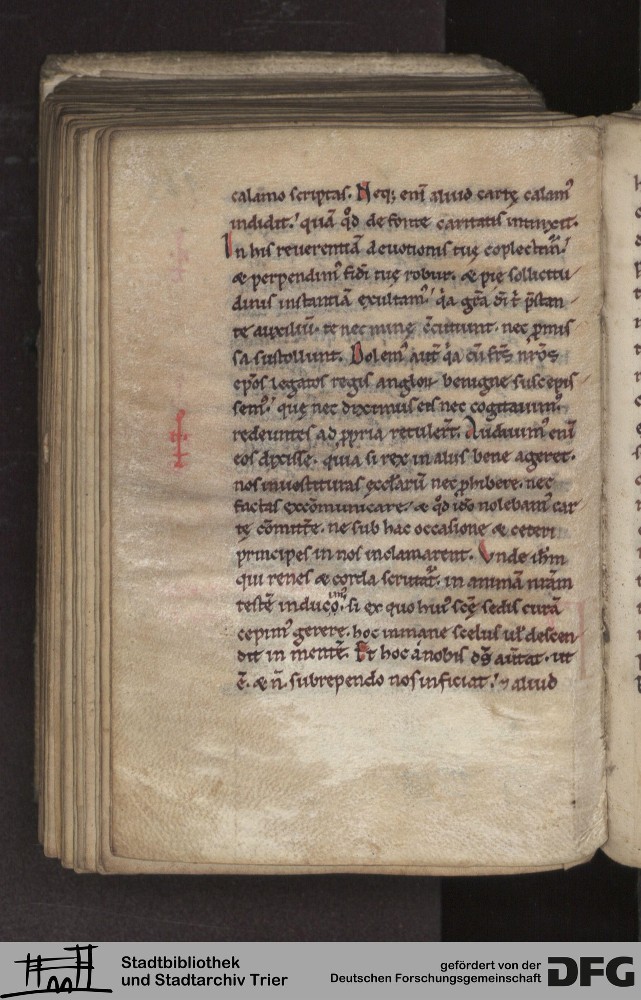 calamo scriptas. Neq; eni aliud cartę calam᷒
indidit. quā qd̄ de fonte caritatis intinxit.
In his reuerentiā deuotionis tuę cōplectim᷒.
& perpendim᷒ fidi tuę robur. & pię sollicitu
dinis instantiā exultam᷒. qa grā dī t̄ p̄stan
te auxiliū. te nec minę c̄cutiunt. nec p̄mis
sa sustollunt. Dolem᷒ aut̄ qa cū frs̄ nr̄os
ep̄os legatos regis anglor. benigne suscepis
sem᷒. quę nec diximus eis nec cogitauim᷒.
redeuntes ad ppria retuler̄t. Audiuim᷒ enī
eos dixisse. quia si rex in aliis bene ageret.
nos inuestituras ęccl̄arū nec phibere. nec
factas excōmunicare. & qd̄ ido nolebam᷒ car
tę cōmitt̄e. ne sub hac occasione & ceteri
principes in nos inclamarent. Vnde ih̄m
qui renes & corda scrutat᷑. in animā nr̄am
testē induco. si ex quo hui᷒ scę sedis curā
cepim᷒ gerere. hoc inmane scelus ul̄ descen
dit in mentē. Et hoc a nobis ds̄ au̅tat. ut
ē. & n̄. subrependo nos inficiat. aliud
Stadtbibliothek
und Stadtarchiv Trier
gefördert von der
Deutschen Forschungsgemeinschaft
DFG